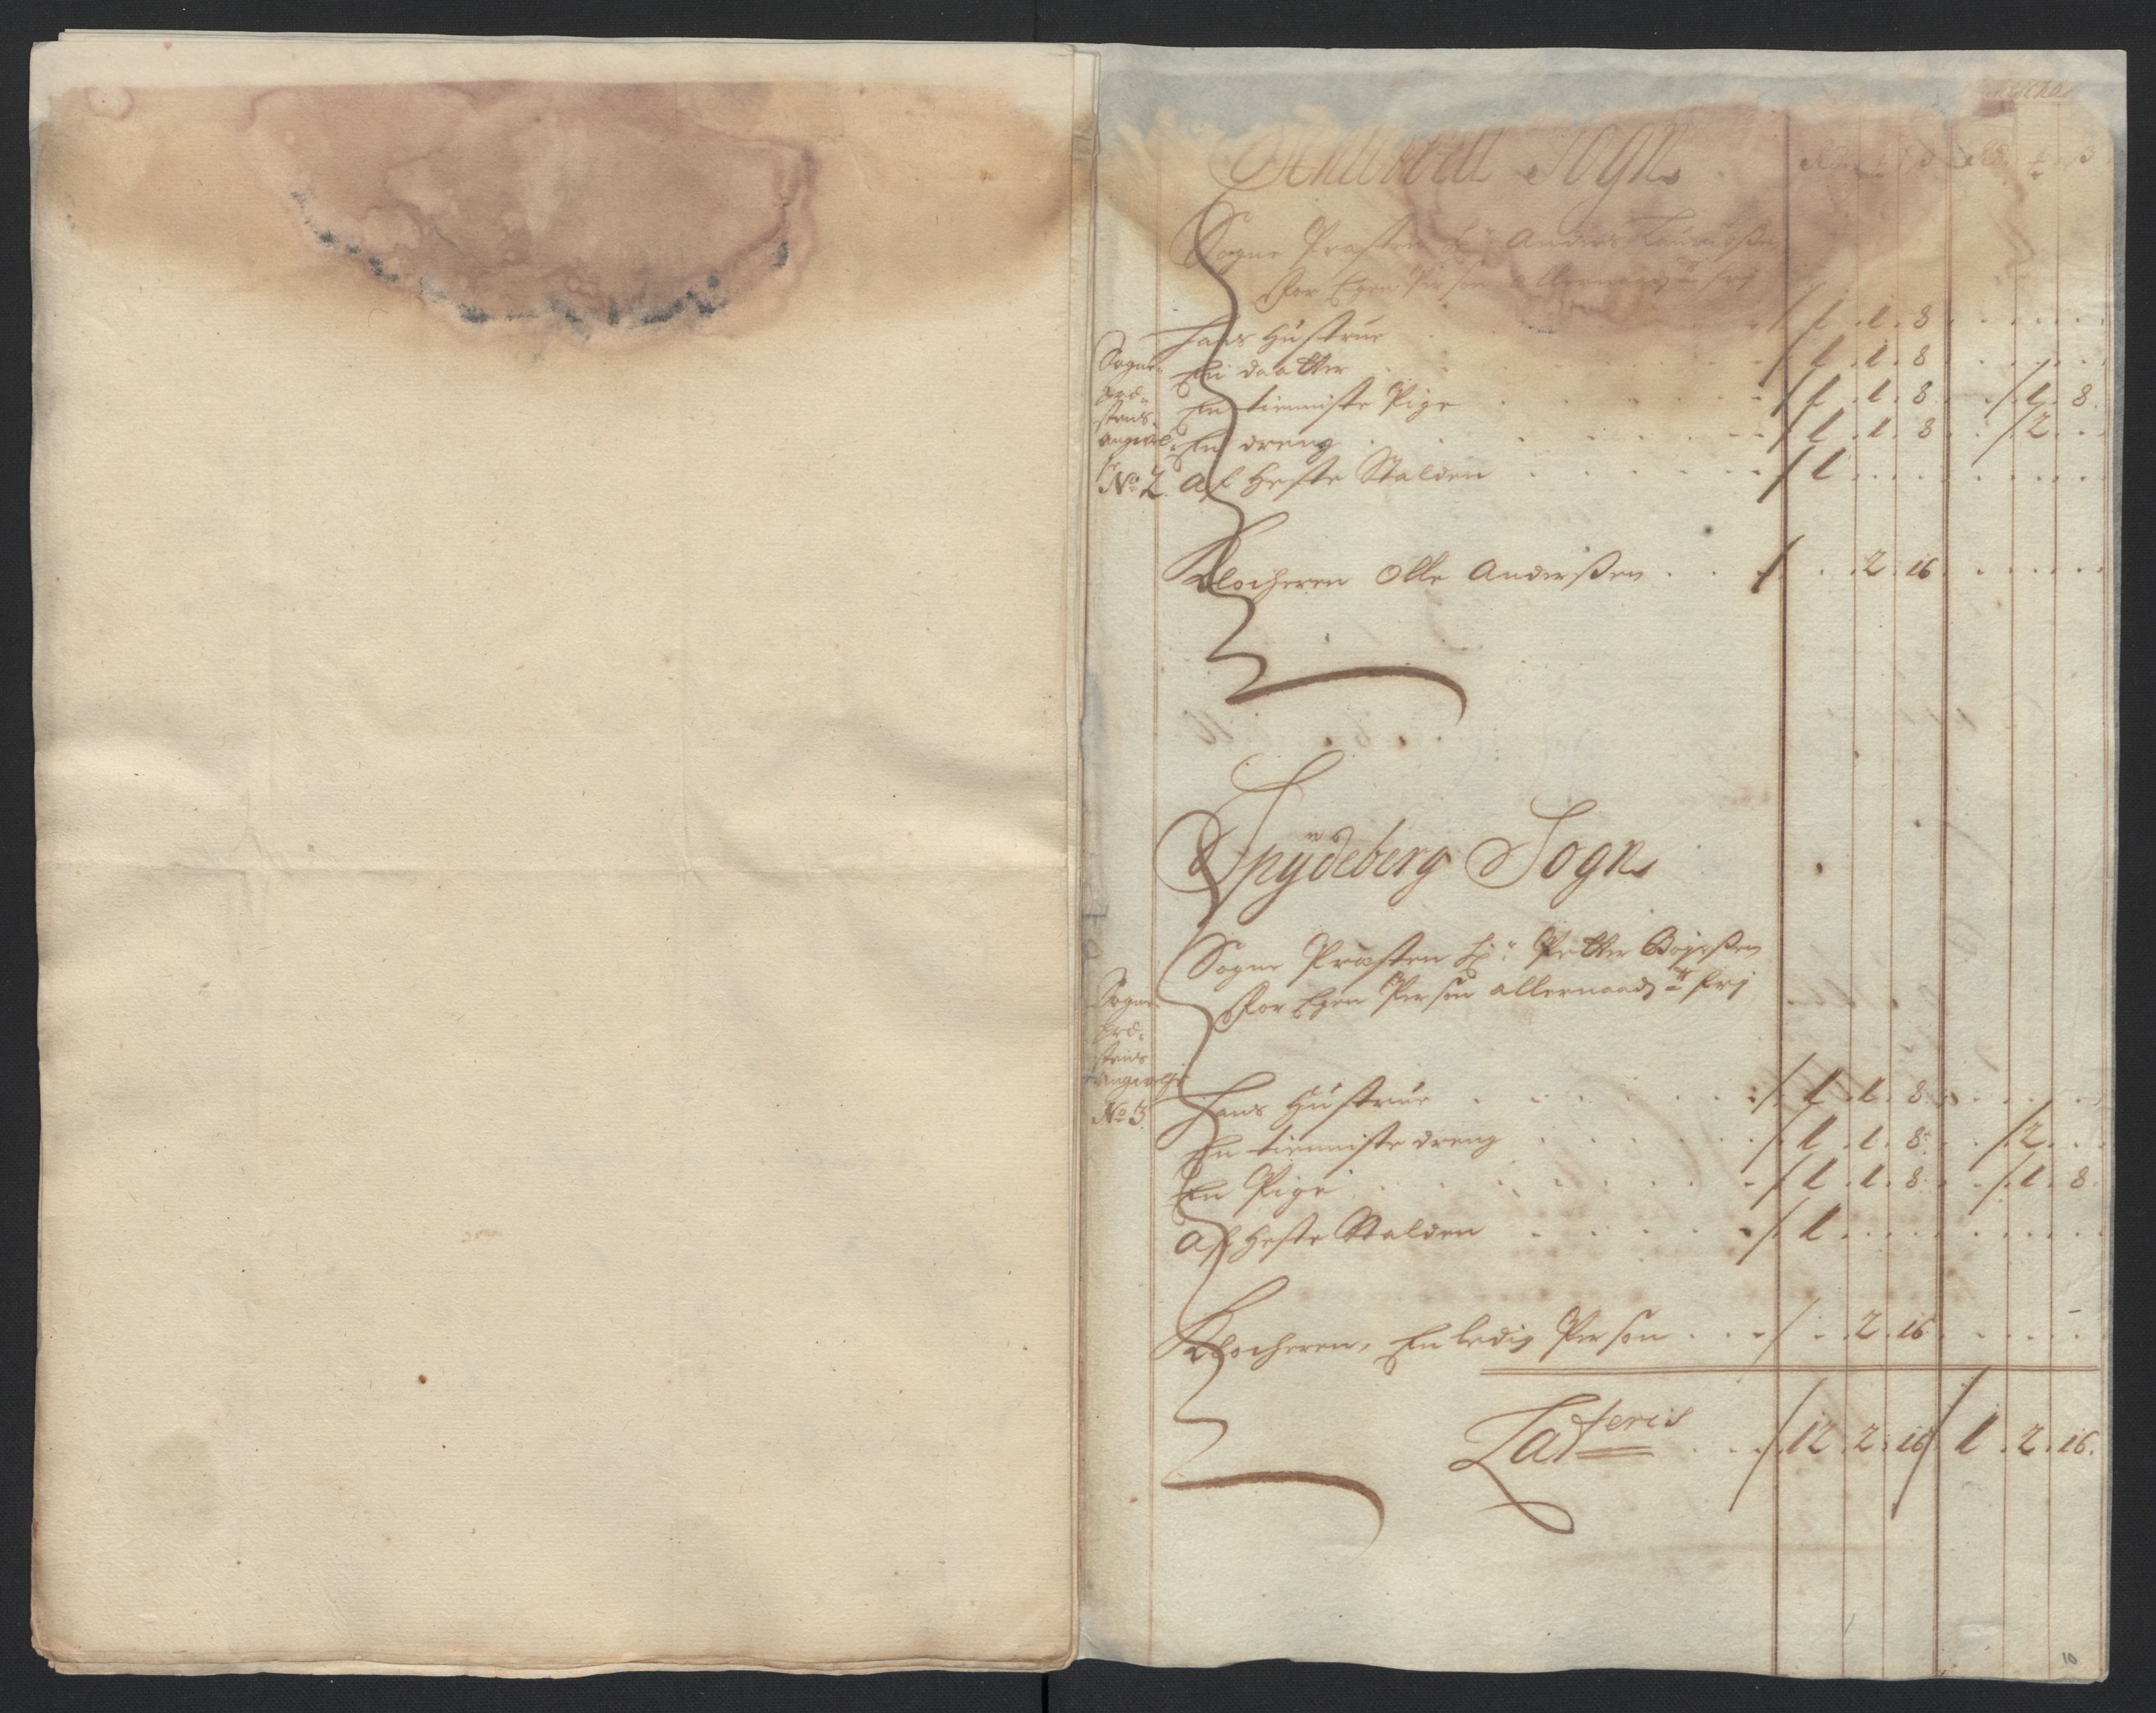 Sogn
Rdr ẞ Rdr ẞ
Sogne Præsten Hr: Anders
for Egen Person allernaadst frj
Hans Hustrue / 1 . 1 . 8
En daatter / 1 . 1 . 8
En tienniste Pige / 1 . 1 . 8 . / . 1 . 8
En dreng / 1 . 1 . 8 . / 2
af Heste Stalden / 1
Sogne-
præ-
stens
angivel:
No 2.
Klocheren Olle Anderßen / . 2 . 16
Spydeberg Sogn
Sogne Præsten Hr: Petter Bojeßen
for Egen Person allernaadst frj
Sogne
præ-
stens
angivelse
No 3.
Hans Hustrue / 1 . 1 . 8
En tienniste dreng / 1 . 1 . 8 . / 2
En Pige / 1 . 1 . 8 . / . 1 . 8
af Heste Stalden / 1
Klocheren, En ledig Person / . 2 . 16
Lateris / 12 . 2 . 16 / 1 . 2 . 16.
10